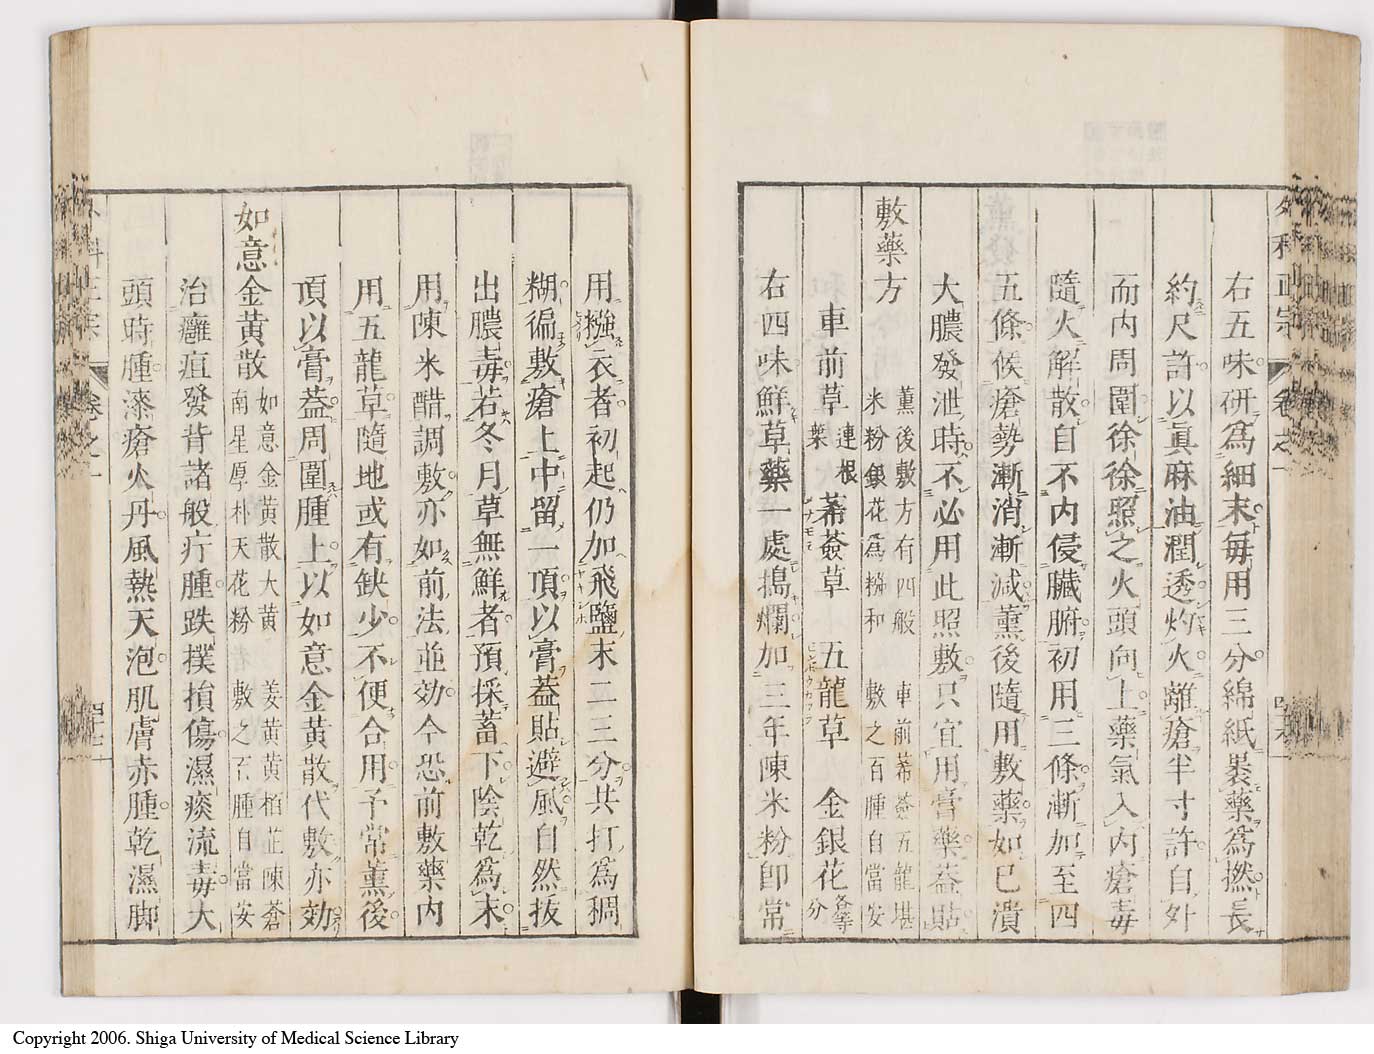 右五味研爲細末毎用三分綿紙裝藥爲撚長
約尺許以眞麻油潤透灼火離瘡半寸許自外
而内周圍徐徐照之火頭向上藥氣入内瘡毒
隨火解散自不内侵臟腑初用三條漸加至四
五條候瘡勢漸消漸減薫後隨用敷藥如已潰
大膿發泄時不必用此照敷只宜用膏藥葢貼
敷藥方
薫後敷方有四般 車前豨薟五龍堪
米粉銀花爲稀和 敷之百腫自當安
車前草連根葉 豨薟草 五龍草 金銀花各等分
右四味鮮草藥一處搗爛加三年陳米粉即常
用糨衣者初起仍加飛鹽末二三分共打爲稠
糊徧敷瘡上中留一頂以膏葢貼避風自然抜
出膿毒若冬月草無鮮者預採蓄下陰乾爲末
用陳米醋調敷亦如前法並効今恐前敷藥内
用五龍草隨地或有缺少不便合用予常薫後
頂以膏葢周圍腫上以如意金黄散代敷亦効
如意金黄散
如意金黄散大黄 姜黄黄栢芷陳蒼
南星厚朴天花粉 敷之百腫自當安
治癰疽發背諸般疔腫跌撲損傷濕痰流毒大
頭時腫漆瘡火丹風熱天泡肌膚赤腫乾濕脚
外科正宗 卷之一
Copyright 2006. Shiga University of Medical Science Library